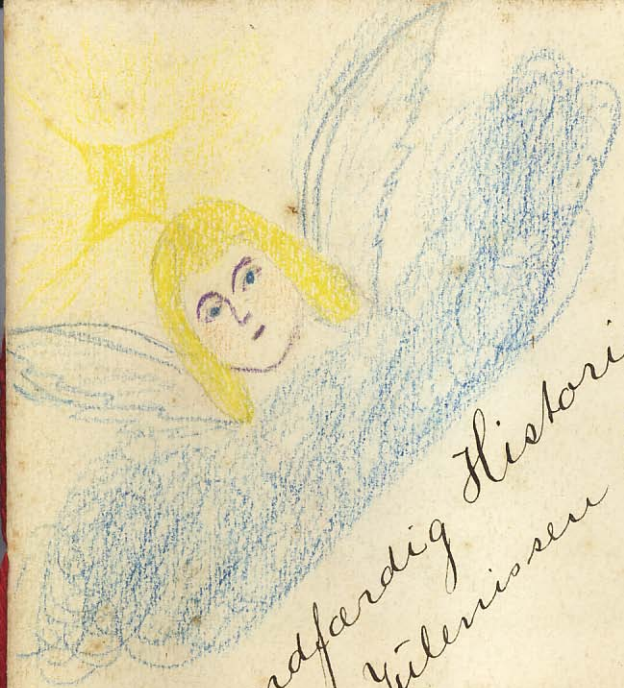 ndfærdig Histori
Julenissen